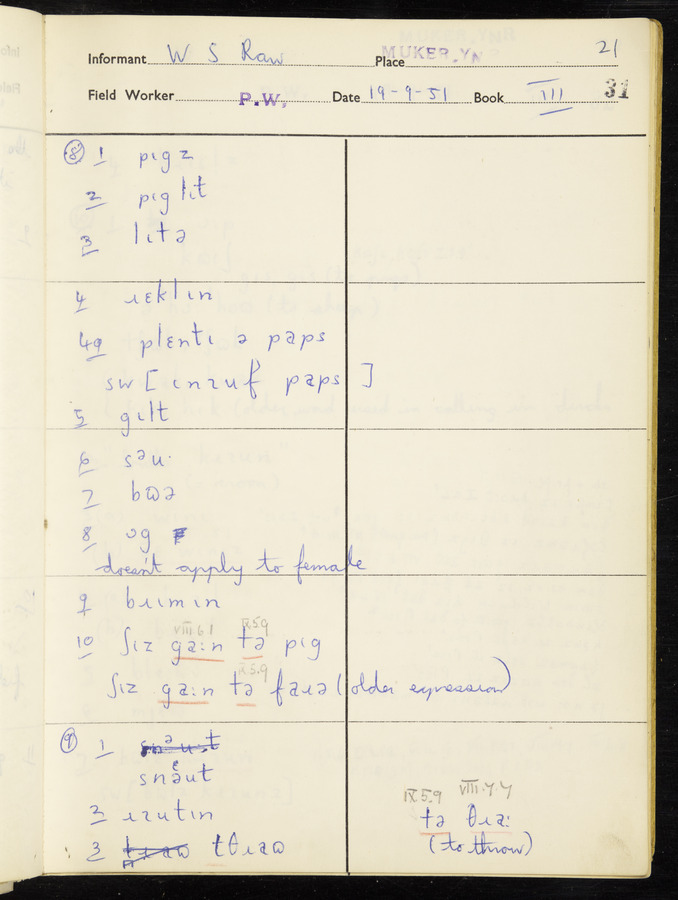 Informant W S Raw Place MUKER.YN 21
Field Worker P.W. Date 19-9-51 Book III 31
8 1 pɪgz
2 pɪglɪt
3 lɪtə
4 ɹɛklɪn
4a plɛntɪ ə paps
sw [ɪnɪuf paps]
5 gɪlt
6 səu·
7 bɷə
8 ɔg
doesn't apply to female
9 bɹɪmɪn
VIII.6.1 IX.5.9
10 ʃɪz ga:n tə pɪg
IX.5.9
ʃɪz ga:n tə faɹə (older expression)
9 1
snəut
2 ɹutɪn
3 tθɹaɷ
IX.5.9 VIII.7.7
tə θɹa:
(to throw)